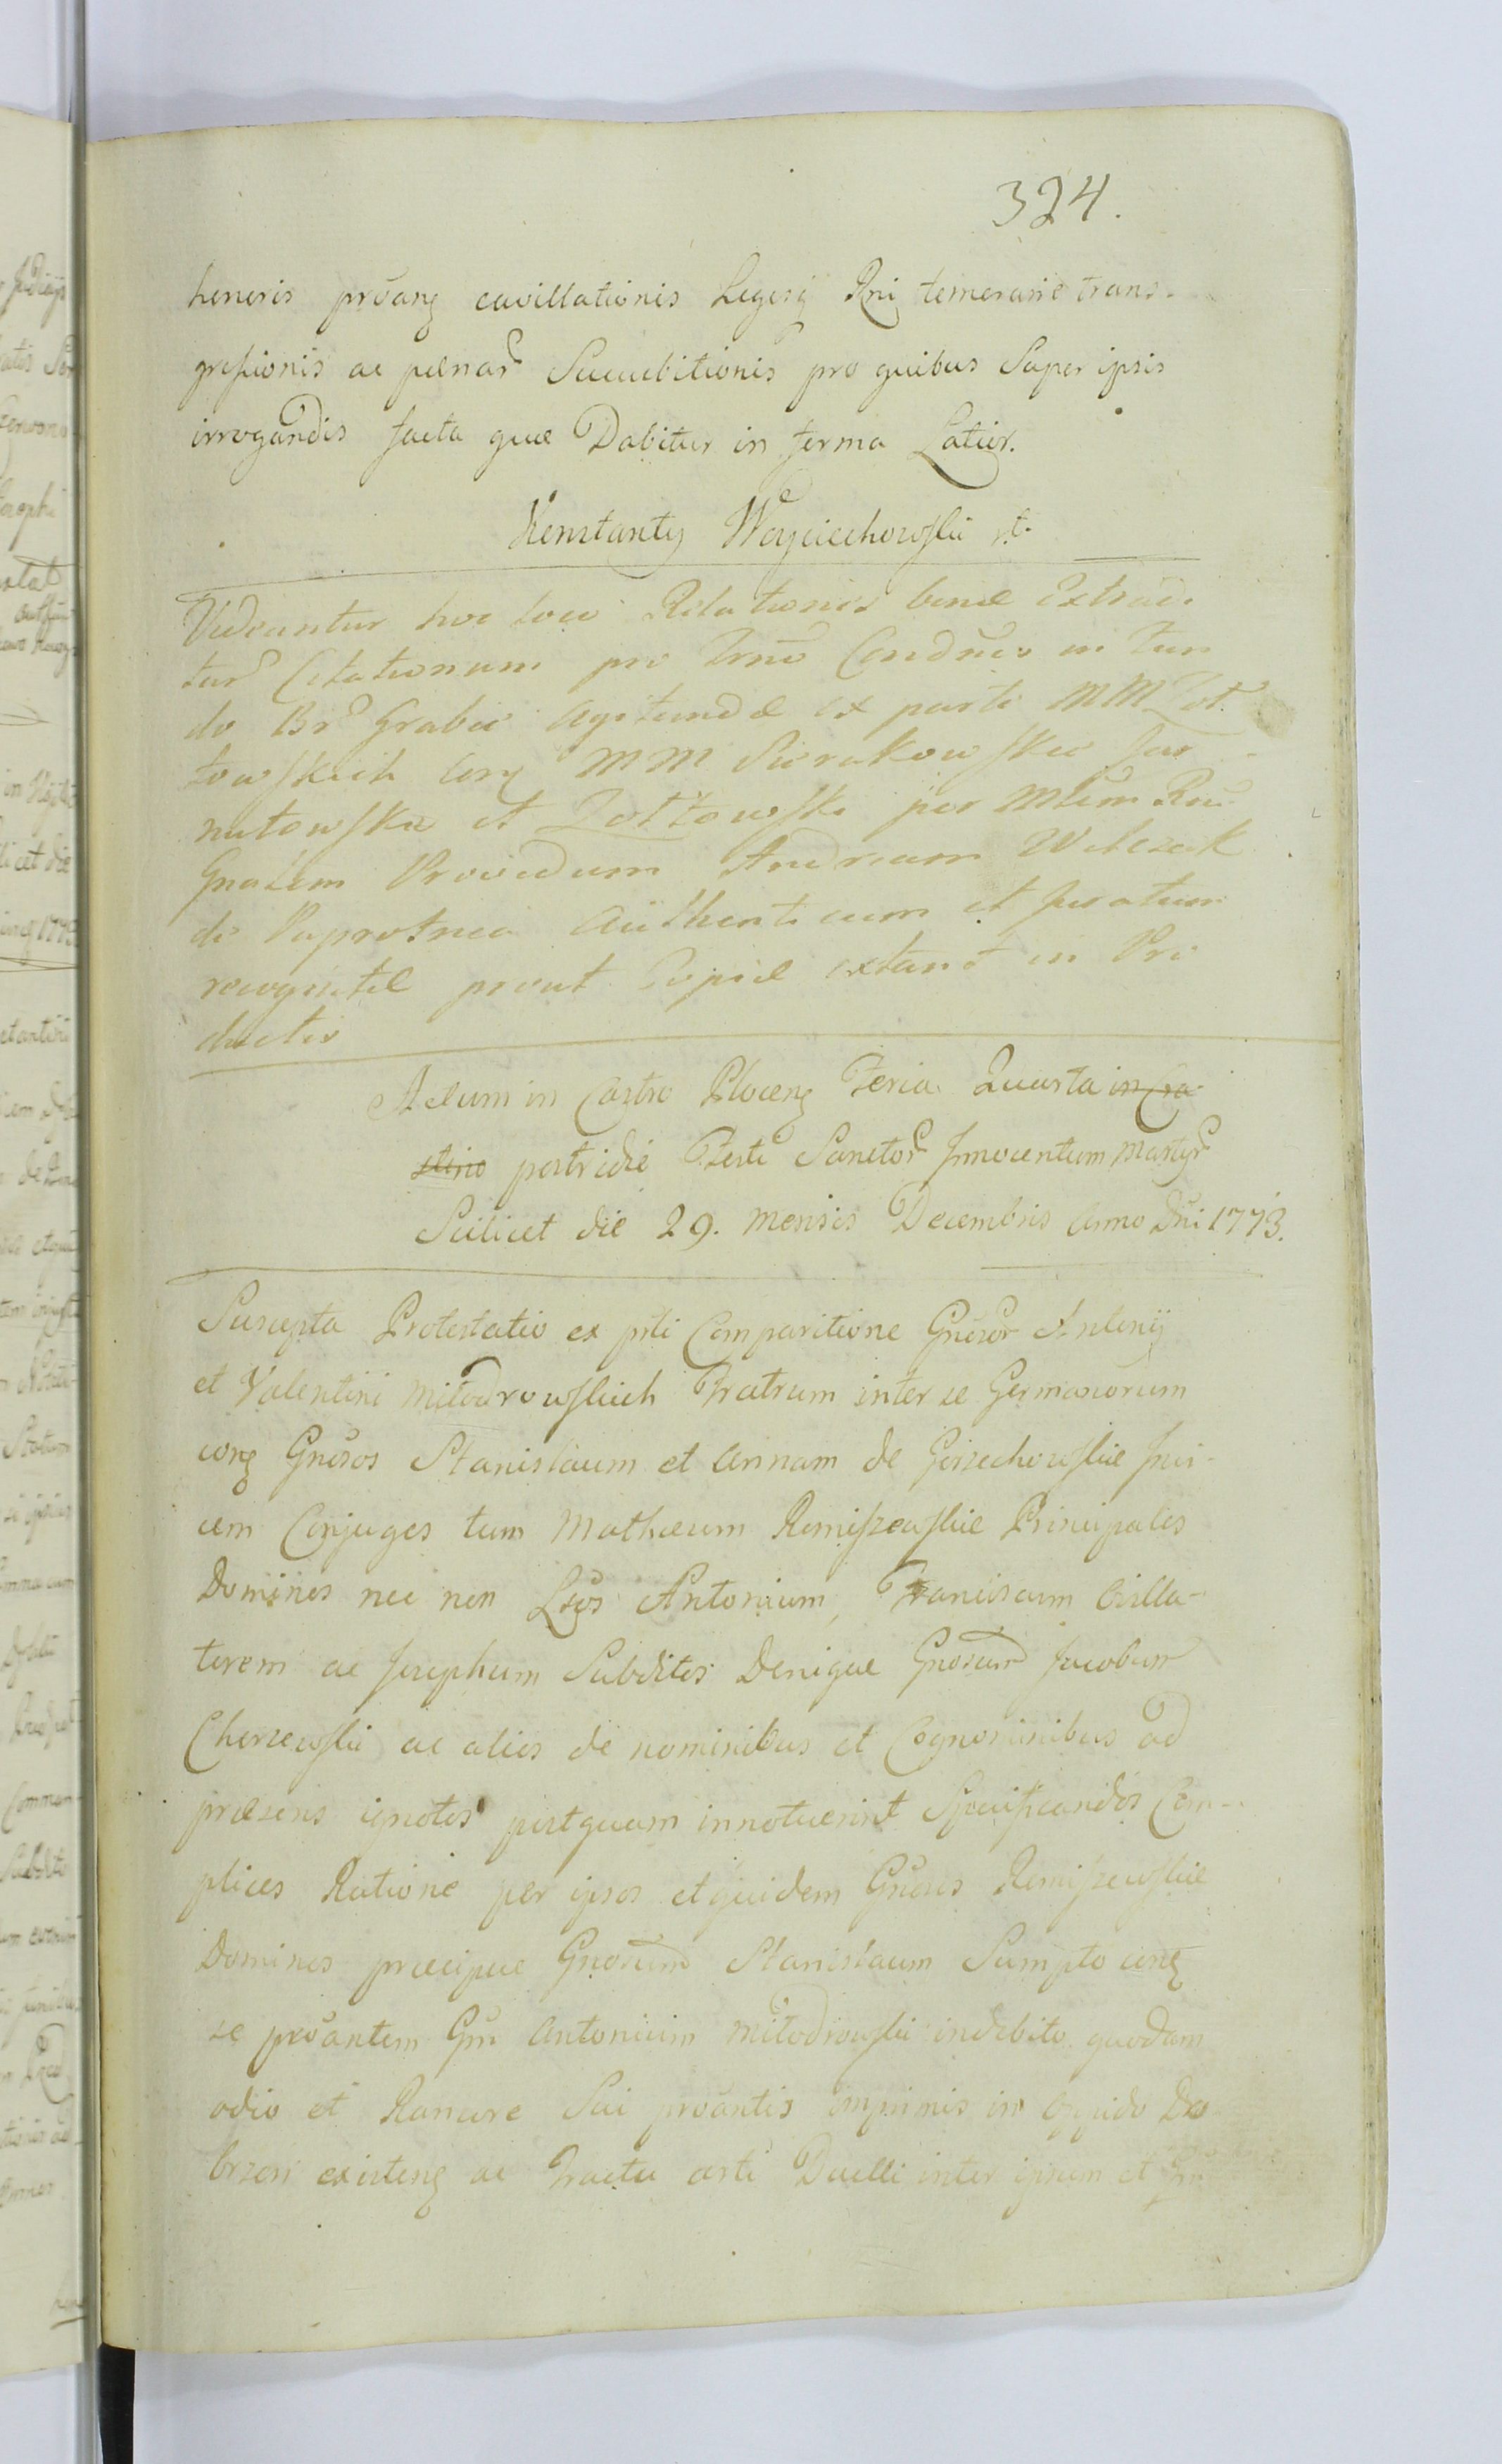 324.
heneris prõang cavillationis Legesq Rni temerarie trans-
gressionis ac pænar Succubitionis pro quibus Super ipsis
irrogandis facta quæ Dabitur in forma Latior.
Konstanty Woyciechowski
Videantur hoc loco Relationes binæ Extradi
tar Citationum pro Trno Conduco in fun
do Br Grabie Agitundæ ex parte MM Zot
towskich cong MM Sierakowskie
nutowskie et Zołtowski per Mlem Rni
Gnalem Providum Andream Wilczek
de Paprotnia Authenticum et Juratum
recognitæ prout Copiæ extant in Pro
ductis
Actum in Castro Ploceng Feria Quarta in Cra
stino postridie Festi Sanctor Innocentum Martyr
Scilicet die 29. Mensis Decembris Anno Dni 1773.
Suscepta Protestatio ex prti Comparitione Gnosor Antonij
et Valentini Miłodrowskich Fratrum inter se Germanorum
cong Gnosos Stanislaum et Annam de Gorzechowskie Invi-
cem Conjuges tum Mathæum Remiszewskie Principales
Dominos nec non Antonium, Franciscum Villa-
torem ac Josephum Subditos Denique Gnosum Jacobum
Chorzewski ac alios de nominibus et Cognominibus ad
præsens ignotos postquam innotuerint Specificandos Com-
plices Ratione per ipsos et quidem Gnosos Remiszewskie
Dominos præcipue Gnosum Stanislaum Sumpto cong
se proãntem Gm Antonium Miłodrowski indebito quodam
odio et Rancore Sui proãntis imprimis in Oppido Do
brzeń existeng ac Tractu certi Duelli inter ipsum et